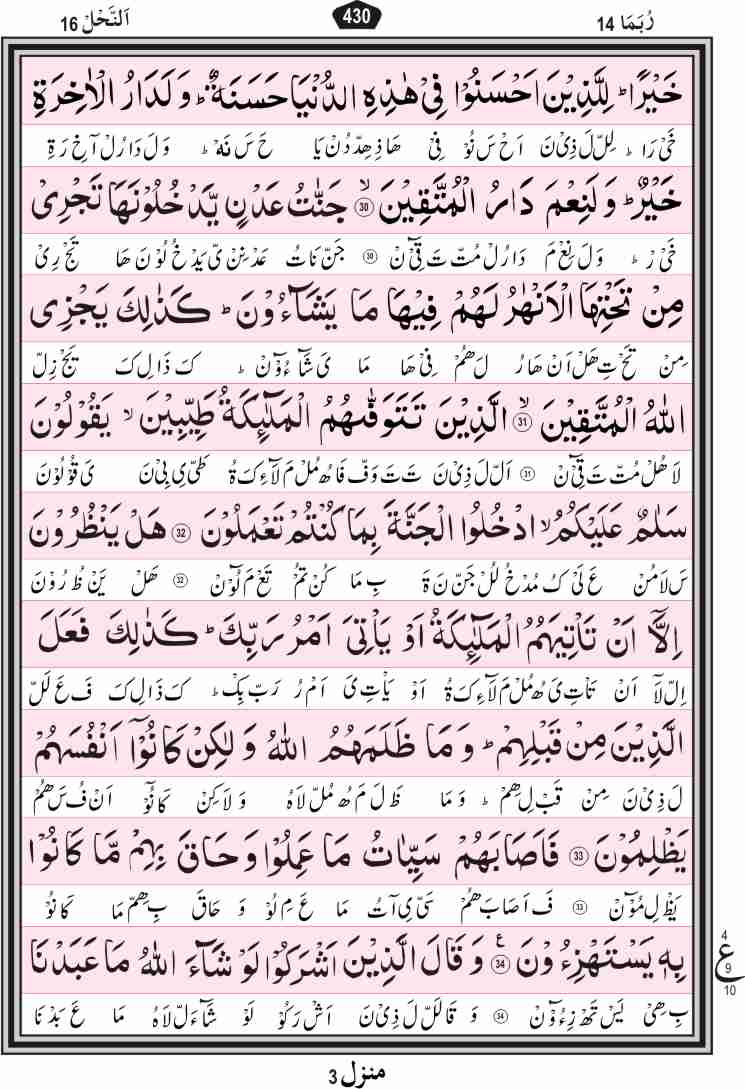 رُبَمَا 14
430
اَلنَّحْل 16
خَيْرًا ؕ لِلَّذِيْنَ اَحْسَنُوْا فِيْ هٰذِهِ الدُّنْيَا حَسَنَةٌ ؕ وَلَدَارُ الْاٰخِرَةِ
خَىْ رَا ؕ لِلْ لَ ذِىْ نَ اَحْ سَ نُوْ فِىْ هَا ذِهِدْ دُنْ يَا حَ سَ نَهْ ؕ وَ لَ دَا رُلْ آ خِ رَ ةِ
خَيْرٌ ؕ وَلَنِعْمَ دَارُ الْمُتَّقِيْنَ ۙ 30 جَنّٰتُ عَدْنٍ يَّدْخُلُوْنَهَا تَجْرِيْ
خَىْ رْ ؕ وَ لَ نِعْ مَ دَا رُلْ مُتْ تَ قِىْٓ نْ 30 جَنْ نَا تُ عَدْ نِنْ ىَ يَدْ خُ لُوْ نَ هَا تَجْ رِىْ
مِنْ تَحْتِهَا الْاَنْهٰرُ لَهُمْ فِيْهَا مَا يَشَآءُوْنَ ؕ كَذٰلِكَ يَجْزِي
مِنْ تَحْ تِ هَلْ اَنْ هَا رُ لَ هُمْ فِىْ هَا مَا ىَ شَآ ءُوْٓنْ ؕ كَ ذَا لِ كَ يَجْ زِلْ
اللّٰهُ الْمُتَّقِيْنَ ۙ 31 الَّذِيْنَ تَتَوَفّٰىهُمُ الْمَلٰٓئِكَةُ طَيِّبِيْنَ ۙ يَقُوْلُوْنَ
لَا هُلْ مُتْ تَ قِىْٓ نْ 31 اَلْ لَ ذِىْ نَ تَ تَ وَفْ فَا هُ مُلْ مَ لَآ ءِ كَ ةُ طَىْ ىِ بِىْ نَ ىَ قُوْ لُوْ نَ
سَلٰمٌ عَلَيْكُمُ ۙ ادْخُلُوا الْجَنَّةَ بِمَا كُنْتُمْ تَعْمَلُوْنَ 32 هَلْ يَنْظُرُوْنَ
سَ لَا مُنْ عَ لَىْ كُ مُدْ خُ لُلْ جَنْ نَ ةَ بِ مَا كُنْ تُمْ تَعْ مَ لُوْٓنْ 32 هَلْ يَنْ ظُ رُوْ نَ
اِلَّآ اَنْ تَاْتِيَهُمُ الْمَلٰٓئِكَةُ اَوْ يَاْتِيَ اَمْرُ رَبِّكَ ؕ كَذٰلِكَ فَعَلَ
اِلْ لَآ اَنْ تَاْ تِ ىَ هُ مُلْ مَ لَآ ءِ كَ ةُ اَوْ يَاْ تِ ىَ اَمْ رُ رَبْ بِكْ ؕ كَ ذَا لِ كَ فَ عَ لَلْ
الَّذِيْنَ مِنْ قَبْلِهِمْ ؕ وَمَا ظَلَمَهُمُ اللّٰهُ وَلٰكِنْ كَانُوْٓا اَنْفُسَهُمْ
لَ ذِىْ نَ مِنْ قَبْ لِ هِمْ ؕ وَ مَا ظَ لَ مَ هُ مُلْ لَا هُ وَ لَا كِنْ كَا نُوْٓ اَنْ فُ سَ هُمْ
يَظْلِمُوْنَ 33 فَاَصَابَهُمْ سَيِّاٰتُ مَا عَمِلُوْا وَحَاقَ بِهِمْ مَّا كَانُوْا
يَظْ لِ مُوْٓنْ 33 فَ اَ صَا بَ هُمْ سَىْ ىِ آ تُ مَا عَ مِ لُوْ وَ حَا قَ بِ هِمْ مَا كَا نُوْ
بِهٖ يَسْتَهْزِءُوْنَ 34 ع وَقَالَ الَّذِيْنَ اَشْرَكُوْا لَوْ شَآءَ اللّٰهُ مَا عَبَدْنَا
بِ هِىْ يَسْ تَهْ زِ ءُوْٓنْ 34 وَ قَا لَلْ لَ ذِىْ نَ اَشْ رَ كُوْ لَوْ شَآ ءَلْ لَا هُ مَا عَ بَدْ نَا
4
ع
9
10
منزل 3